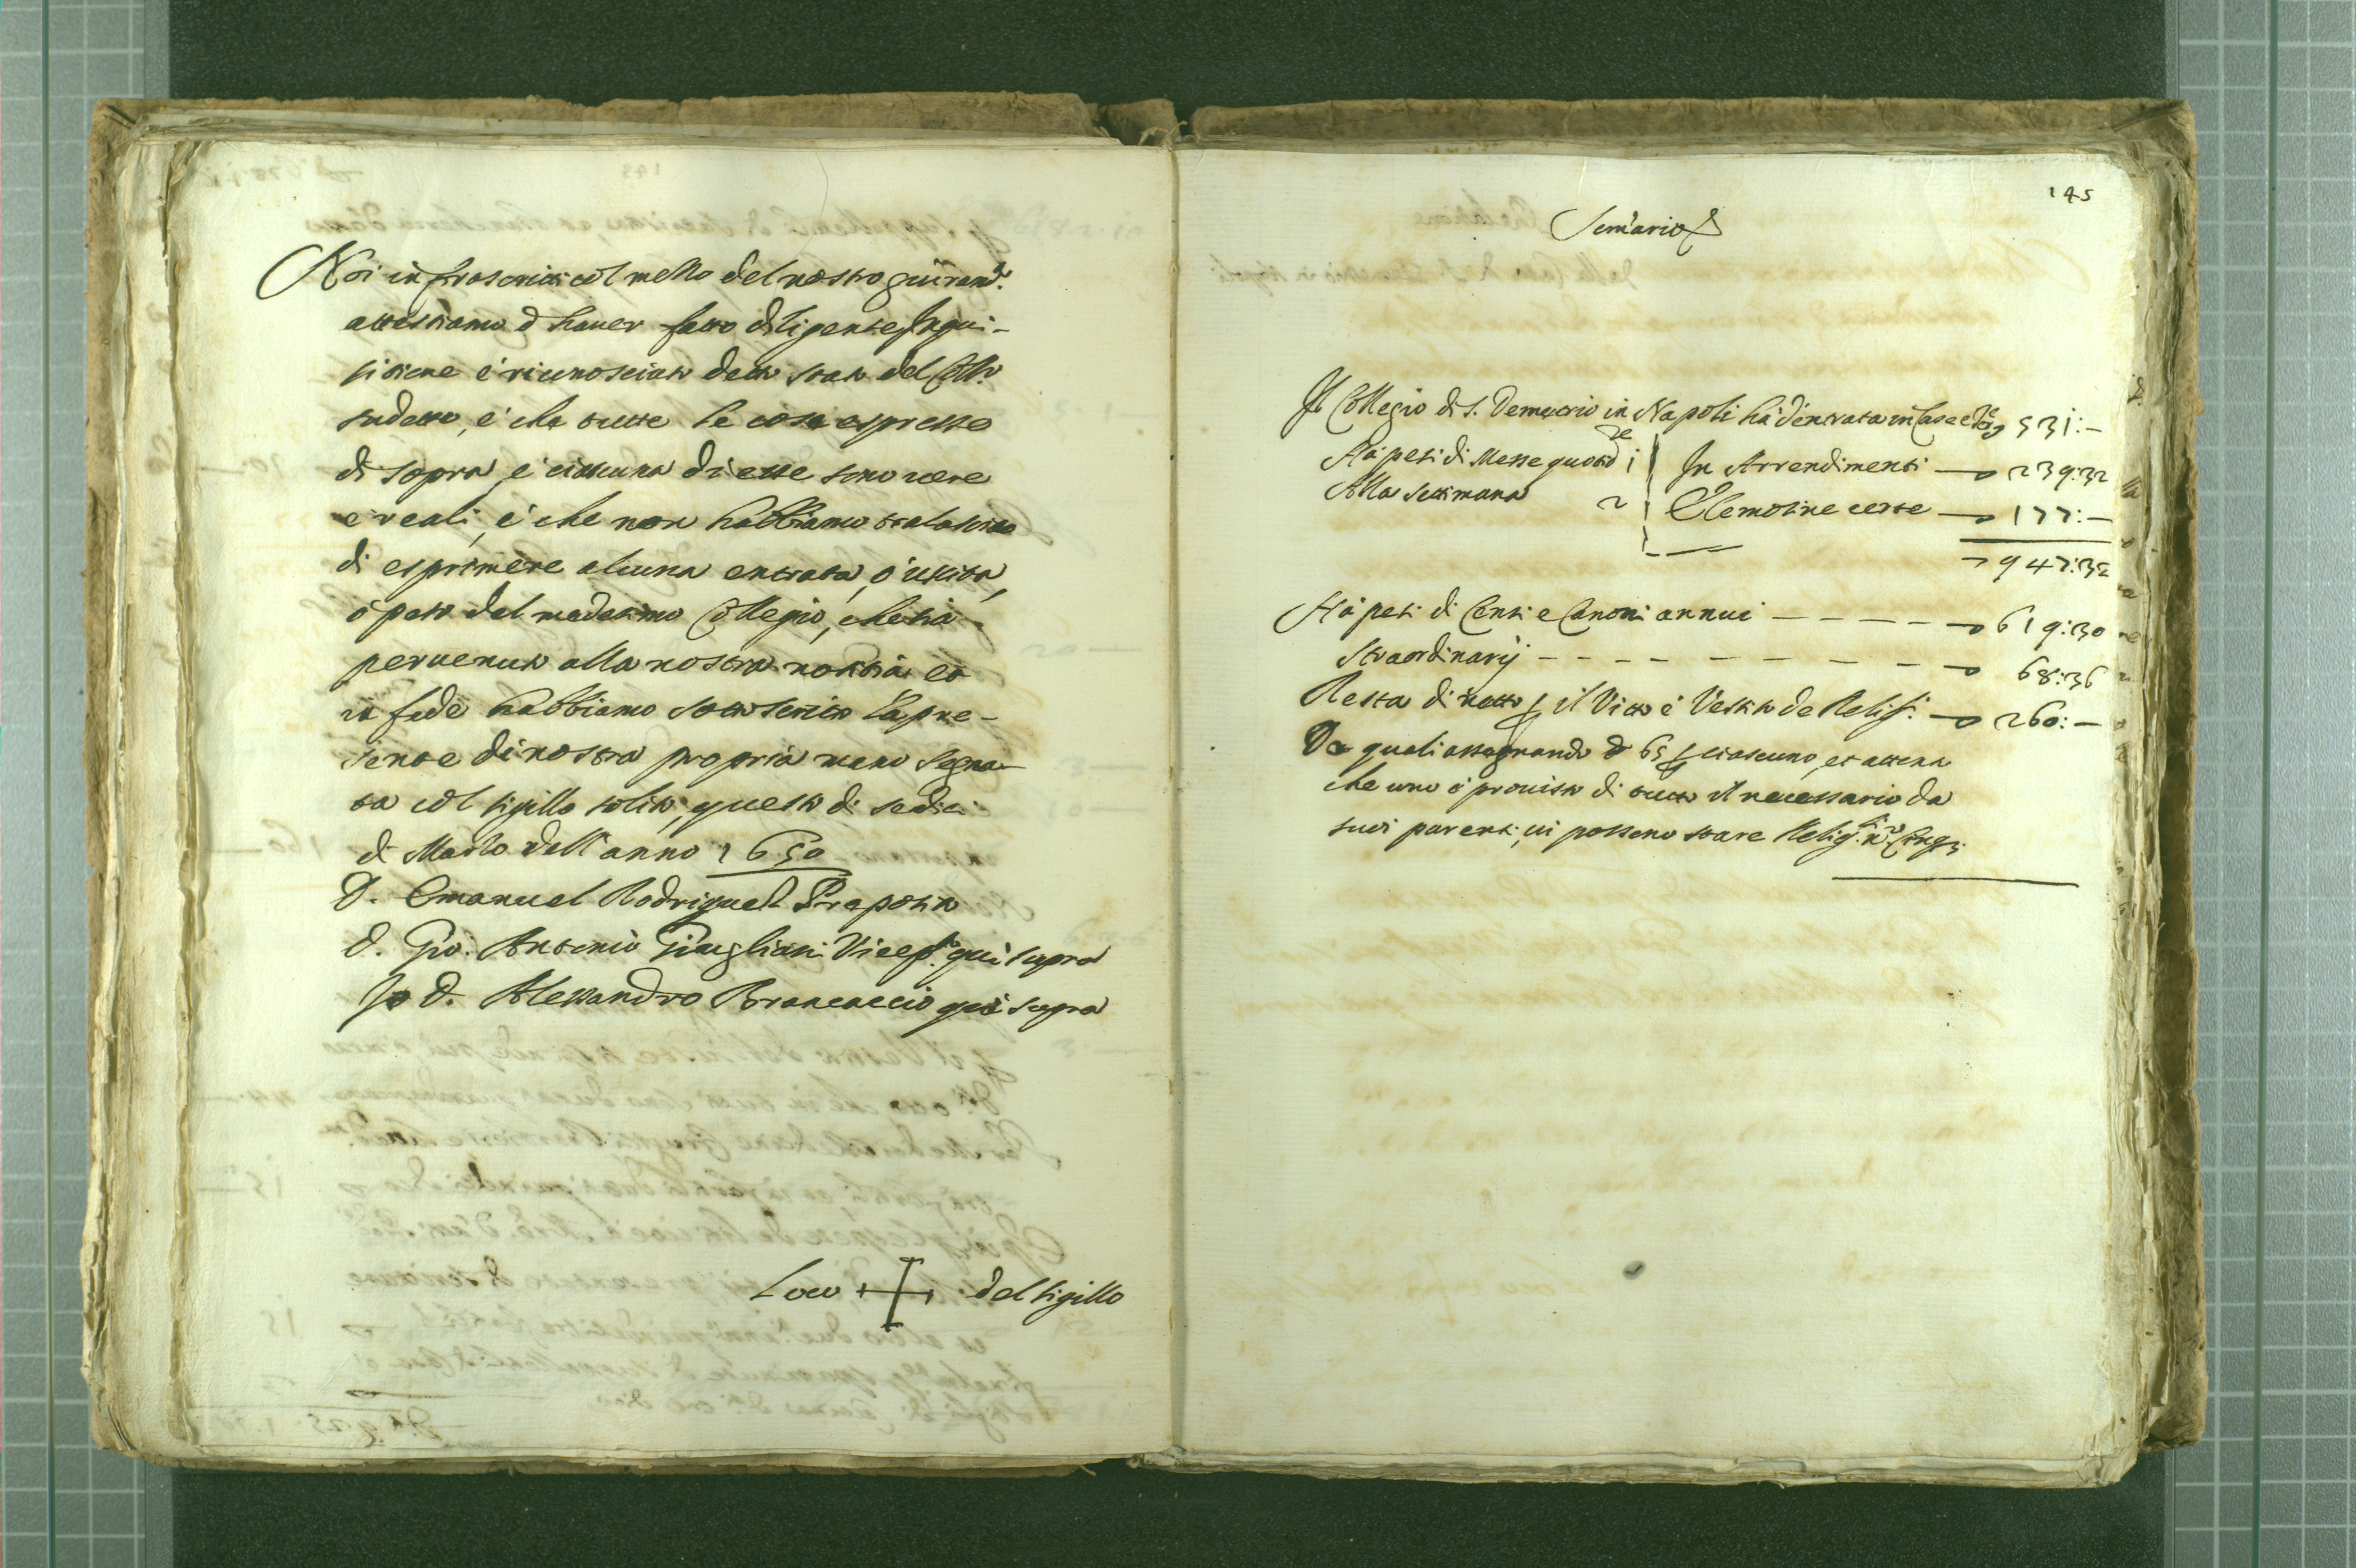 Noi infrascritti col mezzo del nostro giuram.to
attestiamo d'hauer fatto diligente Inqui-
sitione è riconosciuto detto stato del Coll.o
sudetto, è che tutte le cose espresse
di sopra, è ciascuna di esse sono uere
è reali, è che non habbiamo tralasciato
di esprimere alcuna entrata, ò uscita,
ò peso del medesimo Collegio, che sia
peruenuta alla nostra notitia et
in fede habbiamo sottoscritto la pre-
sente di nostra propria mano segna-
ta col sigillo solito, questo di sedici
di Marzo dell'anno 1650
D. Emanuel Rodriguez Preposito
D. Gio: Antonio Giugliani Vicep.to qui supra
Io D. Alessandro Brancaccio qui supra
Loco + del sigillo
145
Som̃ario
Il Collegio di S. Demetrio in Napoli hà d'entrata in Case e 531:-
Hà pesi di Messe quotid.ne 1 | In Arrendimenti — 239:32
Alla settimana 2 | Elemosine certe — 177:-
947:32
Hà pesi di Censi e Canoni annui — 619:30
Straordinarij — 68:36
Resta di netto p il Vitto è Vestito de Relig.si — 260:-
De quali assegnando d 65 p ciascuno, et attento
che uno è prouisto di tutto il necessario da
suoi parenti, ui possono stare Relig.si n.o Cinq;